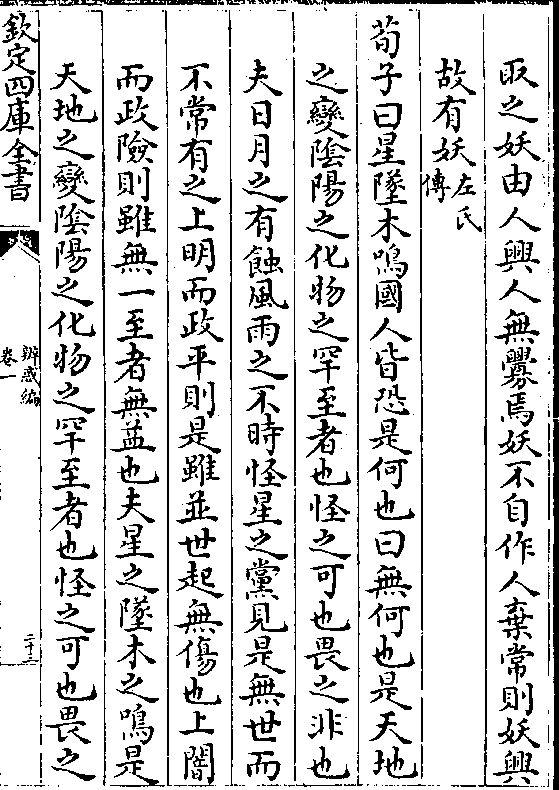 取之妖由人興人無釁焉妖不自作人棄常則妖興
故有妖左氏傳
荀子曰星墜木鳴國人皆恐是何也曰無何也是天地
之變陰陽之化物之罕至者也怪之可也畏之非也
夫日月之有蝕風雨之不時怪星之黨見是無世而
不常有之上明而政平則是雖並世起無傷也上闇
而政險則雖無一至者無益也夫星之墜木之鳴是
天地之變陰陽之化物之罕至者也怪之可也畏之
欽定四庫全書
辨惑編
卷一
二十三